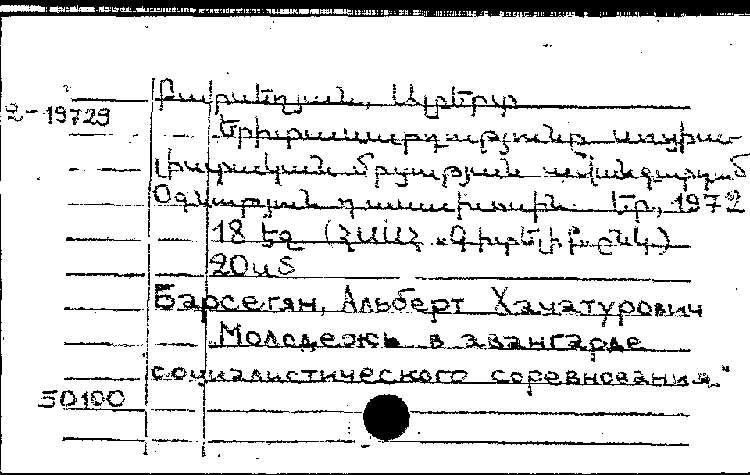 Բարսեղյան, Ալբերտ
2-19729
Երիտասարդությունը սոցիա-
լիստական մրցության ավանգարդում
Օգնություն դասախոսին. Եր., 1972
18 էջ (ՀՍՍՀ „Գիտելիք„ընկ.)
20 սմ
Барсегян, Альберт Хачатурович
Молодежь в авангарде
социалистического соревнования."
50100